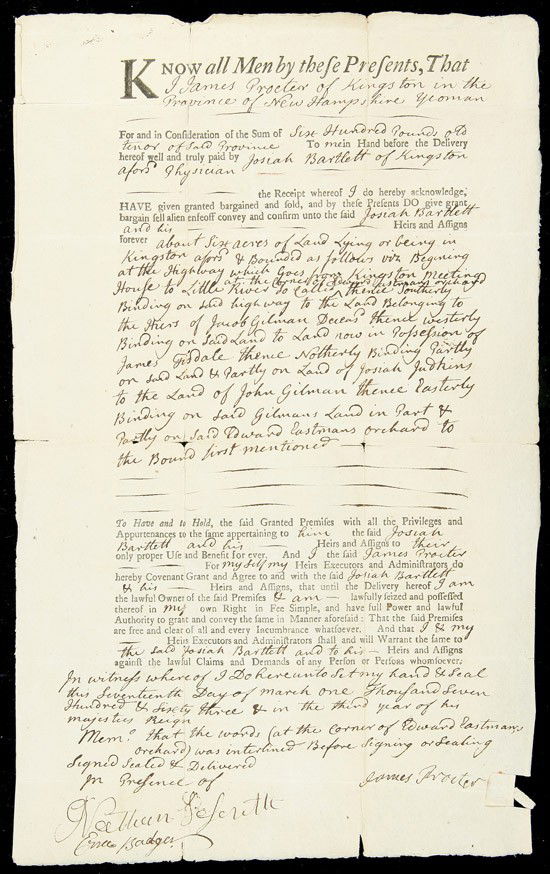 KNOW all Men by theſe Preſents, That
I James Procter of Kingston in the
Province of New Hampshire Yeoman
For and in Conſideration of the Sum of Six Hundred Pounds old
tenor of Said Province To me in Hand before the Delivery
hereof well and truly paid by Josiah Bartlett of Kingston
afors:d Physician
the Receipt whereof I do hereby acknowledge,
HAVE given granted bargained and ſold, and by theſe Preſents DO give grant
bargain ſell alien enfeoff convey and confirm unto the ſaid Josiah Bartlett
and his Heirs and Aſſigns
forever about Six acres of Land Lying or being in
Kingston afors:d & Bounded as follows viz Begining
at the Highway which Goes from Kingston Meeting
House to Little River So Called
at the Corner of Edward Eastmans orchard
thence Southerly
Binding on Said highway to the Land Belonging to
the Heirs of Jacob Gilman Deceas:d thence westerly
Binding on Said Land to Land now in Possession of
James Tisdale thence Notherly Binding Partly
on Said Land & Partly on Land of Josiah Judkins
to the Land of John Gilman thence Easterly
Binding on Said Gilmans Land in Part &
Partly on Said Edward Eastmans orchard to
the Bound first mentioned
To Have and to Hold, the ſaid Granted Premiſes with all the Privileges and
Appurtenances to the ſame appertaining to him the ſaid Josiah
Bartlett and his Heirs and Aſſigns to their
only proper Uſe and Benefit for ever. And I the ſaid James Procter
For my Self my Heirs Executors and Adminiſtrators do
hereby Covenant Grant and Agree to and with the ſaid Josiah Bartlett
& his Heirs and Aſſigns, that until the Delivery hereof I am
the lawful Owner of the ſaid Premiſes & am lawfully ſeized and poſſeſſed
thereof in my own Right in Fee Simple, and have full Power and lawful
Authority to grant and convey the ſame in Manner aforeſaid: That the ſaid Premiſes
are free and clear of all and every Incumbrance whatſoever. And that I & my
Heirs Executors and Adminiſtrators ſhall and will Warrant the ſame to
the Said Josiah Bartlett and to his Heirs and Aſſigns
againſt the lawful Claims and Demands of any Perſon or Perſons whomſoever.
In witness where of I Do here unto Set my hand & Seal
this Seventeenth Day of march one Thousand Seven
Hundred & Sixty three & in the third year of his
majesties Reign
Mem:o that the words (at the Corner of Edward Eastmans
orchard) was interlined Before Signing or Sealing
Signed Sealed & Delivered
In Presence of
James Procter
Nathan
Badger